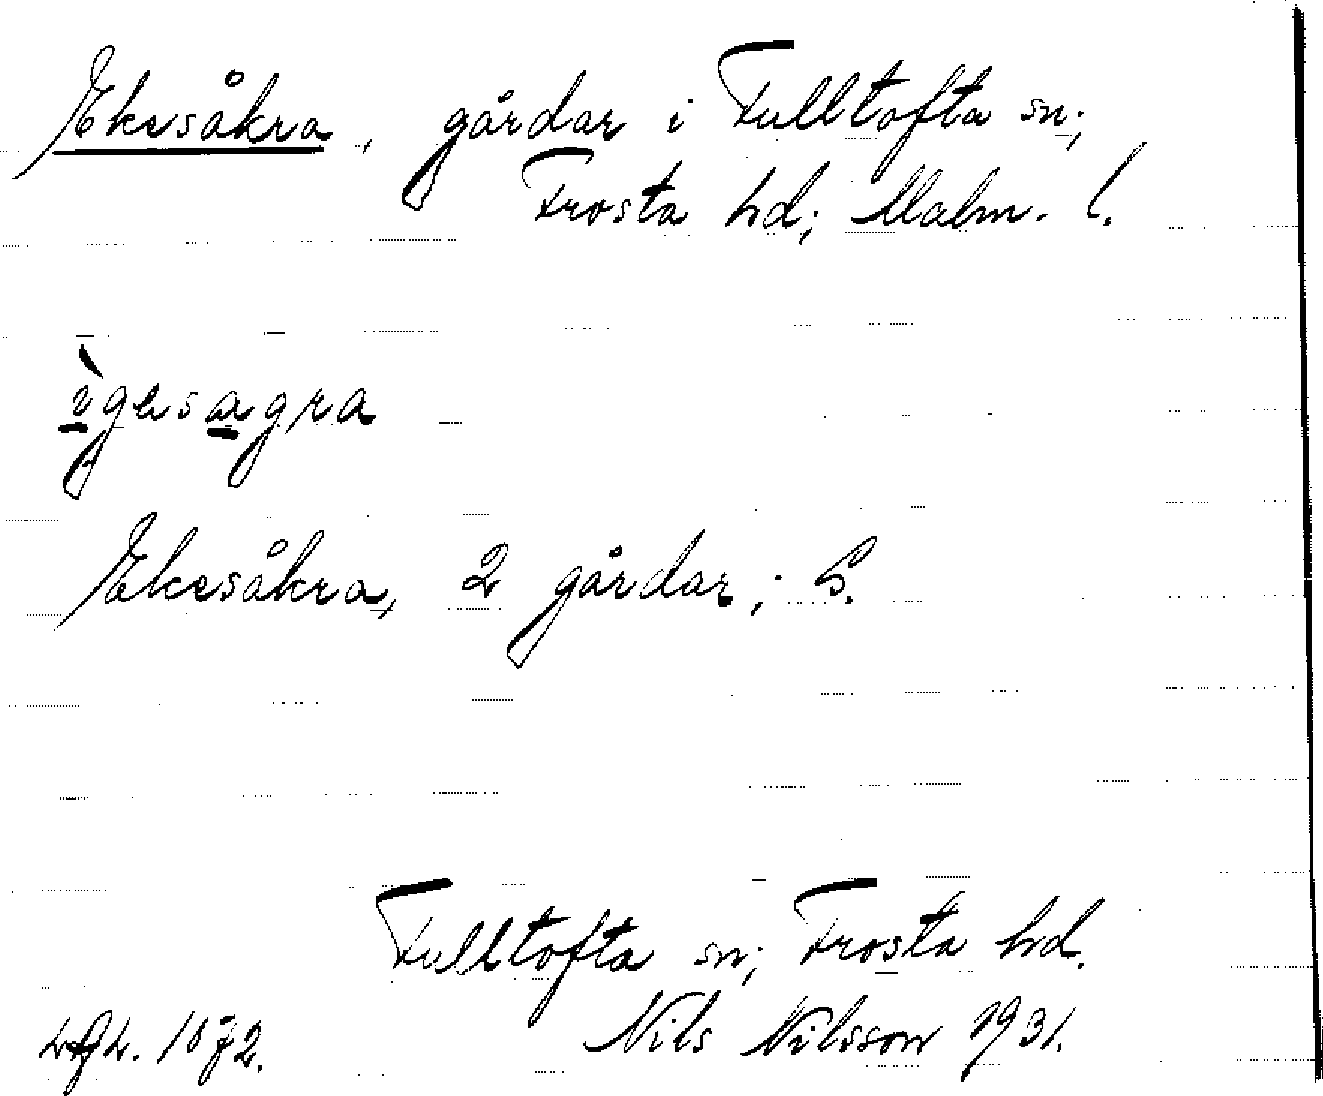 Ekesåkra, gårdar i Fulltofta sn;
Frosta hd; Malm. l.
ìgesagra
Ekesåkra, 2 gårdar; S.
Fulltofta sn; Frosta hd.
1872. Nils Nilsson 1931.